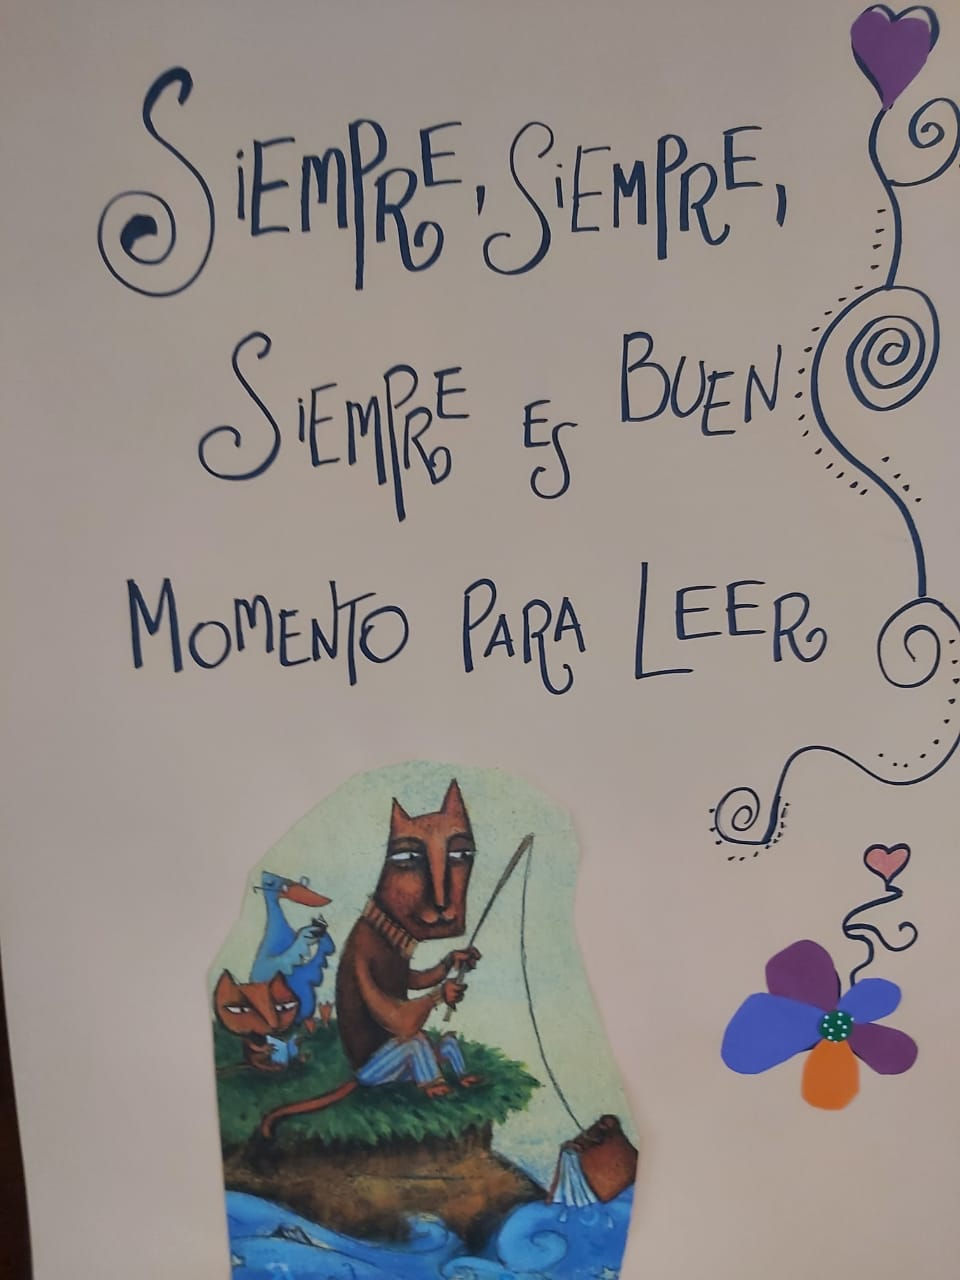 SiEMPRE, SiEMPRE,
SiEMPRE ES BUEN
MOMENTO PARA LEER